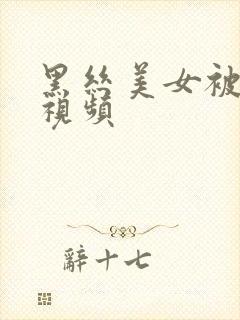 黑丝美女被
視頻
辭十七